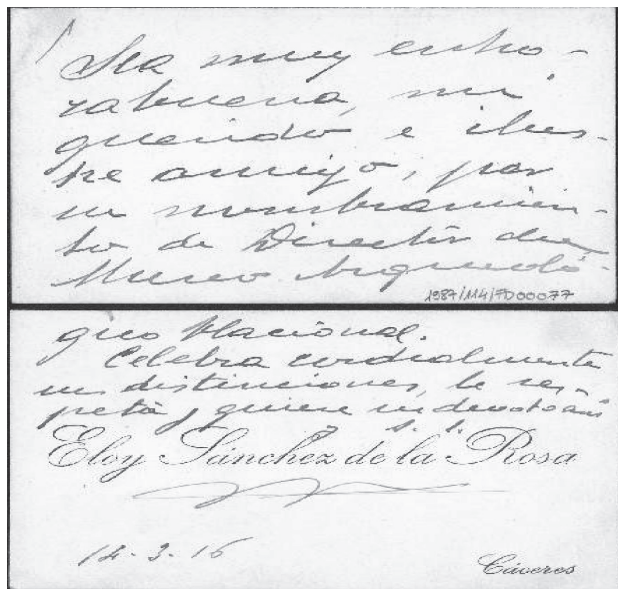 Sea muy enho-
rabuena, mi
querido e ilus-
tre amigo, por
su nombramien-
to de Director del
Museo Arqueoló-
1987/114/FD00077
gico Nacional.
Celebra cordialmente
sus distinciones, le res-
peta y quiere su devoto am
s. s.
Eloy Sánchez de la Rosa
14-3-16
Cáceres